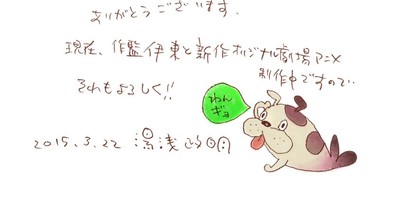 ありがとうございます.
現在、作監伊東と新作オリジナル劇場アニメ
制作中ですので…
それもよろしく!!
わん
ギョ
2015.3.22 湯浅政明